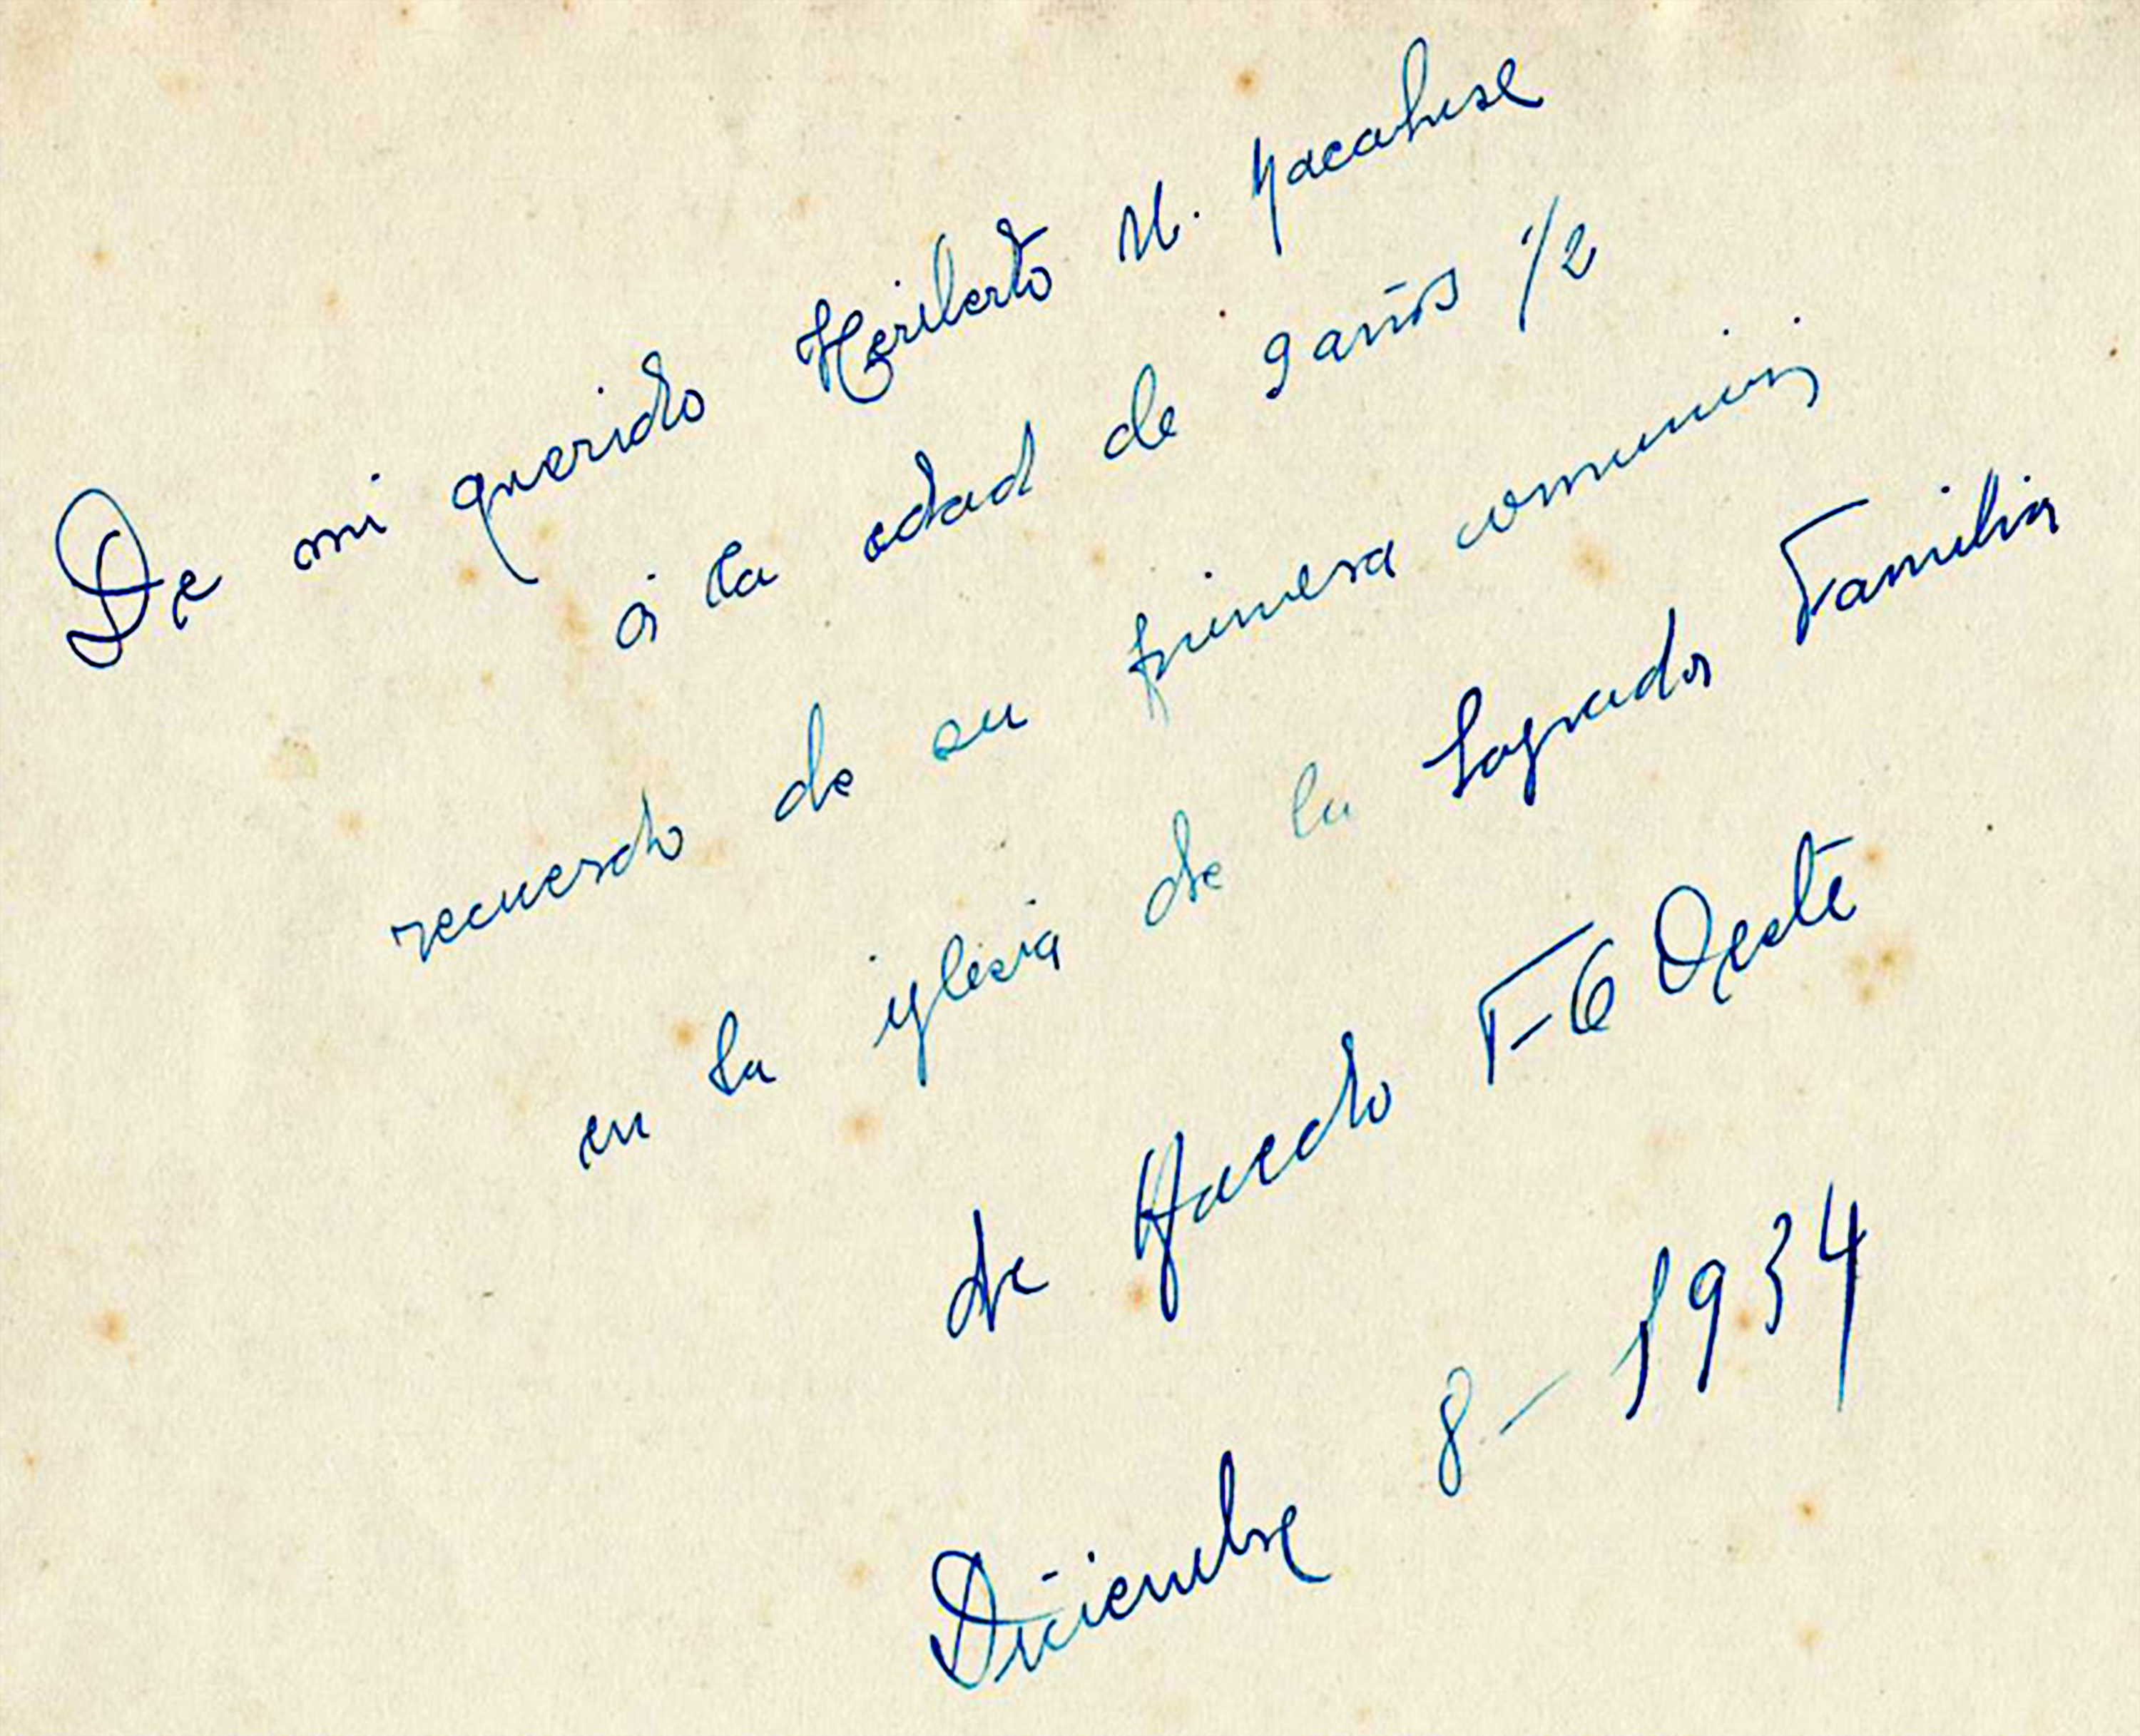 De mi querido Heriberto M.
á la edad de 9 años 1/2
recuerdo de su primera comunión
en la iglesia de la Sagrada Familia
de Haedo F-C Oeste
Diciembre 8 - 1934